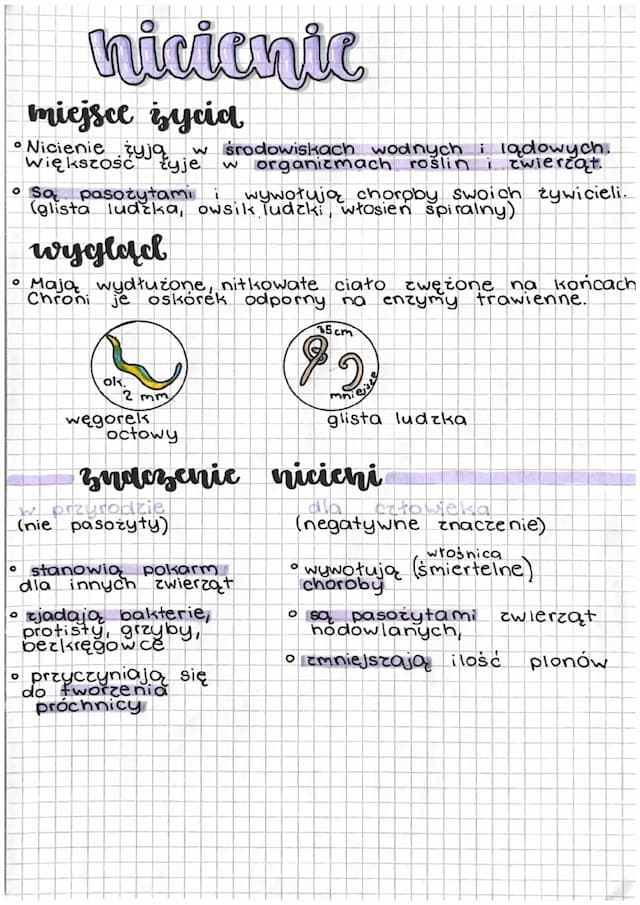 nicienie
miejsce życia
• Nicienie żyją w środowiskach wodnych i lądowych.
Większość żyje w organizmach roślin i zwierząt
• Są pasożytami i wywołują choroby swoich żywicieli.
(glista ludzka, owsik ludzki, włosień spiralny)
wygląd
• Mają wydłużone, nitkowate ciało zwężone na końcach
Chroni je oskórek odporny na enzymy trawienne.
ok.
2 mm
węgorek
octowy
35 cm
mniejsze
glista ludzka
znaczenie nicieni
w przyrodzie
(nie pasożyty)
• stanowią pokarm
dla innych zwierząt
• zjadają bakterie,
protisty, grzyby,
bezkręgowce
• przyczyniają się
do tworzenia
próchnicy
dla człowieka
(negatywne znaczenie)
włośnica
• wywołują (śmiertelne)
choroby
• są pasożytami zwierząt
hodowlanych,
• zmniejszają ilość plonów